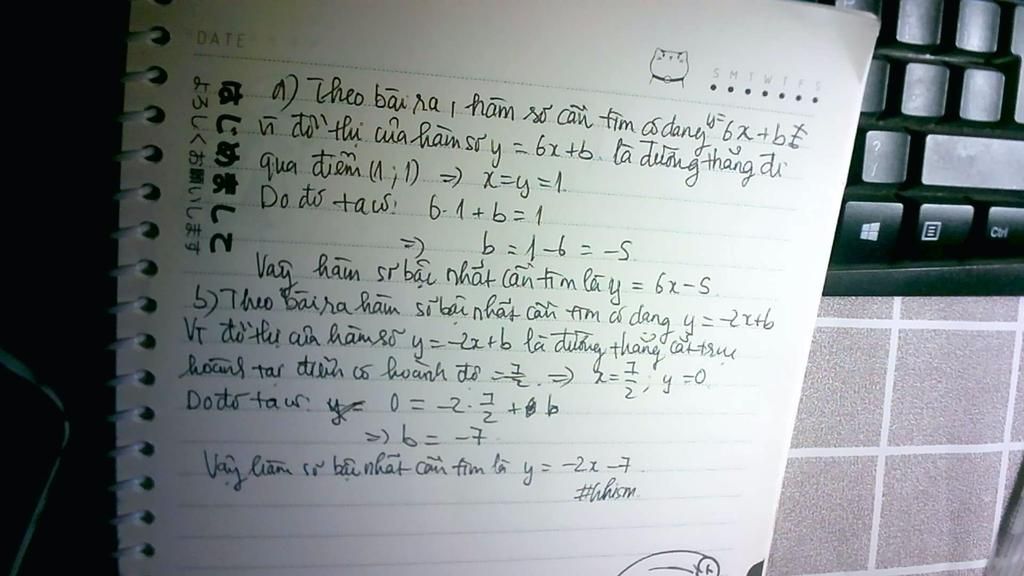 DATE
S M T W T F S
はじめまして
よろしくお願いします
a) Theo bài ra, hàm số cần tìm có dạng y = 6x + b
Vì đồ thị của hàm số y = 6x + b là đường thẳng đi
qua điểm (1; 1) => x = y = 1
Do đó ta có: 6.1 + b = 1
=> b = 1 - 6 = -5
Vậy hàm số bậc nhất cần tìm là y = 6x - 5
b) Theo bài ra hàm số bậc nhất cần tìm có dạng y = -2x + b
Vì đồ thị của hàm số y = -2x + b là đường thẳng cắt trục
hoành tại điểm có hoành độ = 7/2 => x = 7/2, y = 0
Do đó ta có: 0 = -2 . 7/2 + b
=> b = -7
Vậy hàm số bậc nhất cần tìm là y = -2x - 7
?
Ctrl